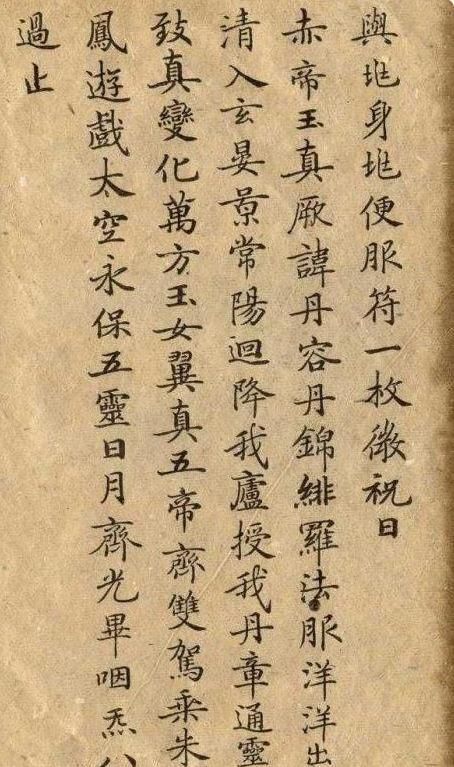 與𡉏身𡉏便服符一枚微祝曰
赤帝玉真厥諱丹容丹錦緋羅法服洋洋出
清入玄晏景常陽迴降我廬授我丹章通靈
致真變化萬方玉女翼真五帝齊雙駕乘朱
鳳遊戲太空永保五靈日月齊光畢咽炁八
過止